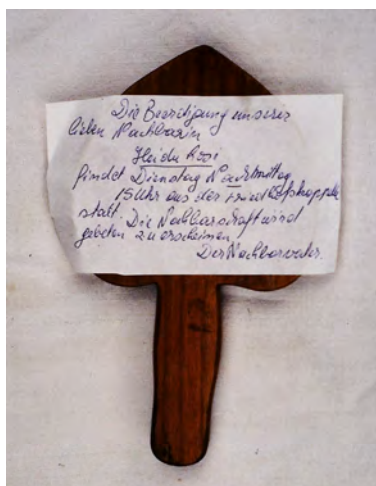 Die Beerdigung unserer
lieben Nachbarin
Heidu Rosi
findet Dienstag Nachmittag
15 Uhr aus der Friedhofskapelle
statt. Die Nachbarschaft wird
gebeten zu erscheinen.
Der Nachbarvater.